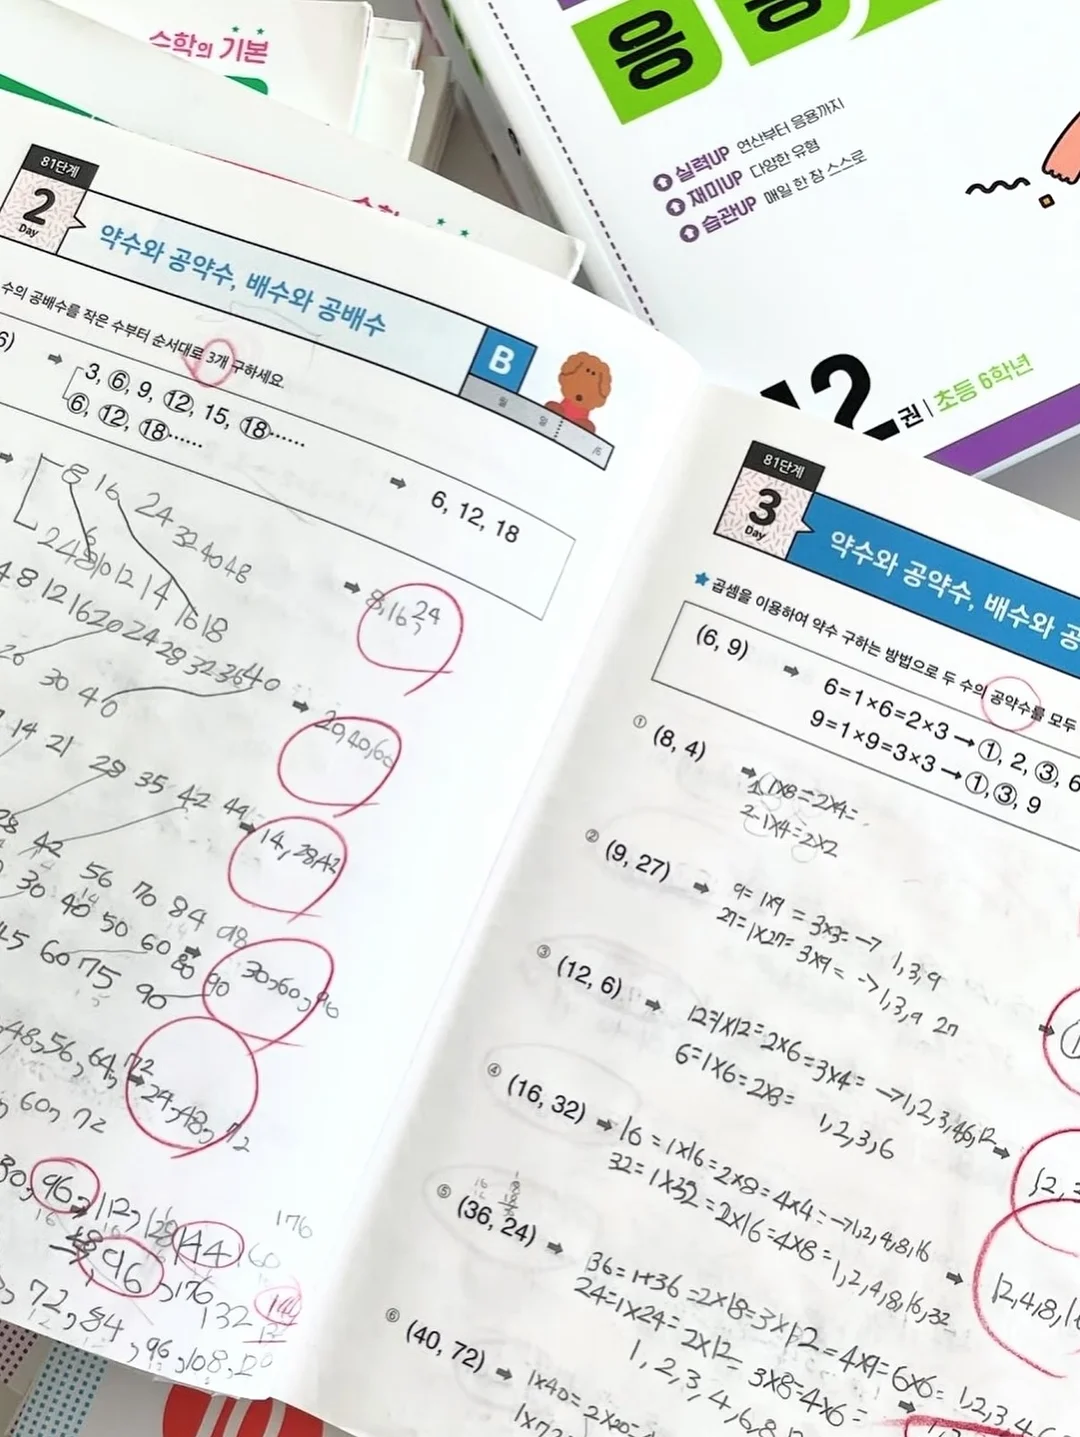 수학의 기본
응
실력UP 연산부터 응용까지
재미UP 다양한 유형
습관UP 매일 한 장 스스로
12권 | 초등 6학년
81단계
2
Day
약수와 공약수, 배수와 공배수
B
월 일
/6
수의 공배수를 작은 수부터 순서대로 3개 구하세요.
6) ➡ 3, ⑥, 9, ⑫, 15, ⑱······
⑥, ⑫, ⑱······
➡ 6, 12, 18
8 16 24 32 40 48
2 4 6 8 10 12 14 16 18
➡ 8, 16, 24
4 8 12 16 20 24 28 32 36 40
20 30 40
➡ 20, 40, 60
14 21 28 35 42 49
28 42 56 70 84 98
➡ 14, 28, 42
30 40 50 60 80 90
45 60 75 90
➡ 30, 60, 90
48, 56, 64, 72
60, 72
➡ 24, 48, 72
96, 112, 128, 144, 160
176
48, 96
176
132 144
72, 84, 96, 108, 120
81단계
3
Day
약수와 공약수, 배수와 공
★ 곱셈을 이용하여 약수 구하는 방법으로 두 수의 공약수를 모두
(6, 9) ➡ 6=1×6=2×3→①, 2, ③, 6
9=1×9=3×3→①, ③, 9
① (8, 4) ➡ 1×8=2×4=
1×4=2×2
② (9, 27) ➡ 9=1×9=3×3=→ 1, 3, 9
27=1×27=3×9=→1, 3, 9 27
③ (12, 6) ➡ 12=1×12=2×6=3×4=→1, 2, 3, 4, 6, 12
6=1×6=2×3= 1, 2, 3, 6
④ (16, 32) ➡ 16=1×16=2×8=4×4=→1, 2, 4, 8, 16
32=1×32=2×16=4×8=1, 2, 4, 8, 16, 32
➡ 1,2,4,8,1
⑤ (36, 24) ➡ 36=1+36=2×18=3×12=4×9=6×6= 1,2,3,4,6
24=1×24=2×12=3×8=4×6=
1, 2, 3, 4, 6, 8, 12
⑥ (40, 72) ➡ 1×40=2×20=
1×72